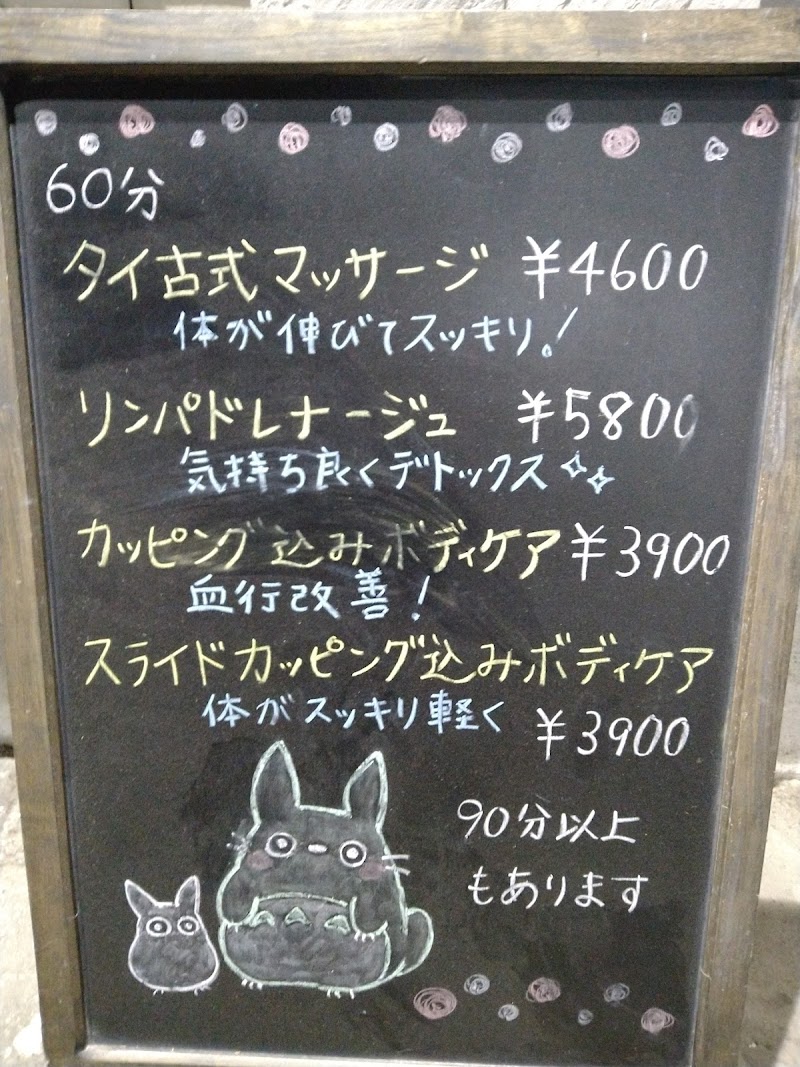 60分
タイ古式マッサージ ¥4600
体が伸びてスッキリ!
リンパドレナージュ ¥5800
気持ち良くデトックス
カッピング込みボディケア ¥3900
血行改善!
スライドカッピング込みボディケア
体がスッキリ軽く ¥3900
90分以上
もあります